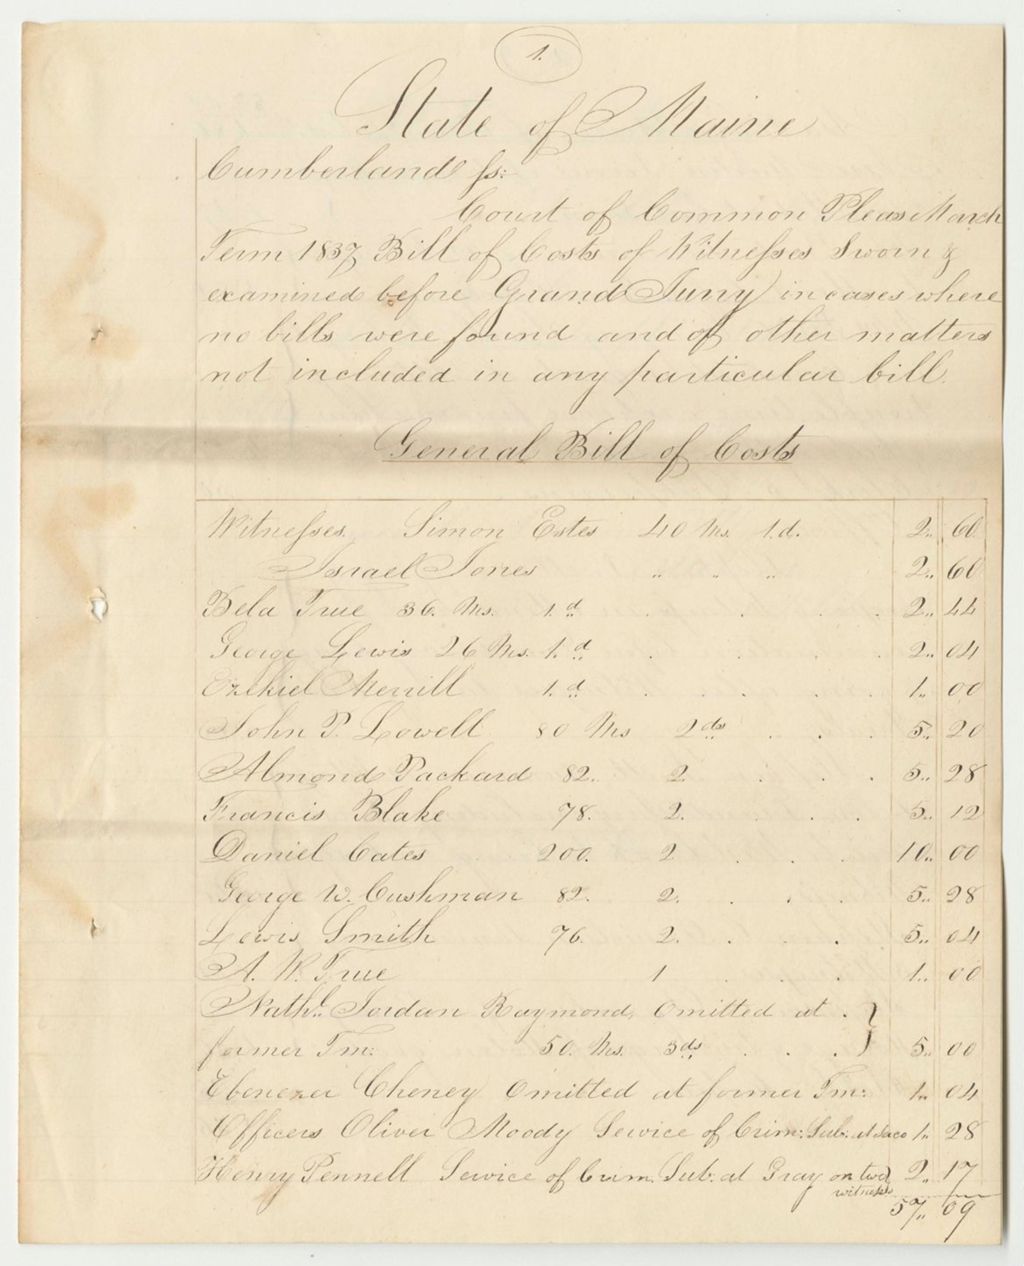 1.
State of Maine
Cumberland ss:
Court of Common Pleas March
Term 1837 Bill of Costs of Witnesses Sworn &
examined before Grand Jury in cases where
no bills were found and of other matters
not included in any particular bill.
General Bill of Costs
Witnesses. Simon Estes 40 Ms. 1.d. 2.. 60
Israel Jones " " " 2.. 60
Bela True 36. Ms. 1.d . . . 2.. 44
George Lewis 26 Ms. 1.d . . . 2.. 04
Ezekiel Merrill 1.d . . . . 1.. 00
John P. Lowell 80 Ms 2ds . . . 5.. 20
Almond Packard 82. 2. . . . 5.. 28
Francis Blake 78. 2. . . . 5.. 12
Daniel Cates 200. 2 . . . 10.. 00
George W. Cushman 82. 2. . . . 5.. 28
Lewis Smith 76. 2. . . . 5.. 04
A. W. True 1 . . . 1.. 00
Nathl. Jordan Raymond, Omitted at . }
former Tm: 50. Ms. 3ds . . . 5.. 00
Ebenezer Cheney Omitted at former Tm: 1.. 04
Officers Oliver Moody Service of Crim: Sub. at Saco 1.. 28
Henry Pennell Service of Crim. Sub. at Gray on two 2.. 17
witnesses
57.. 09